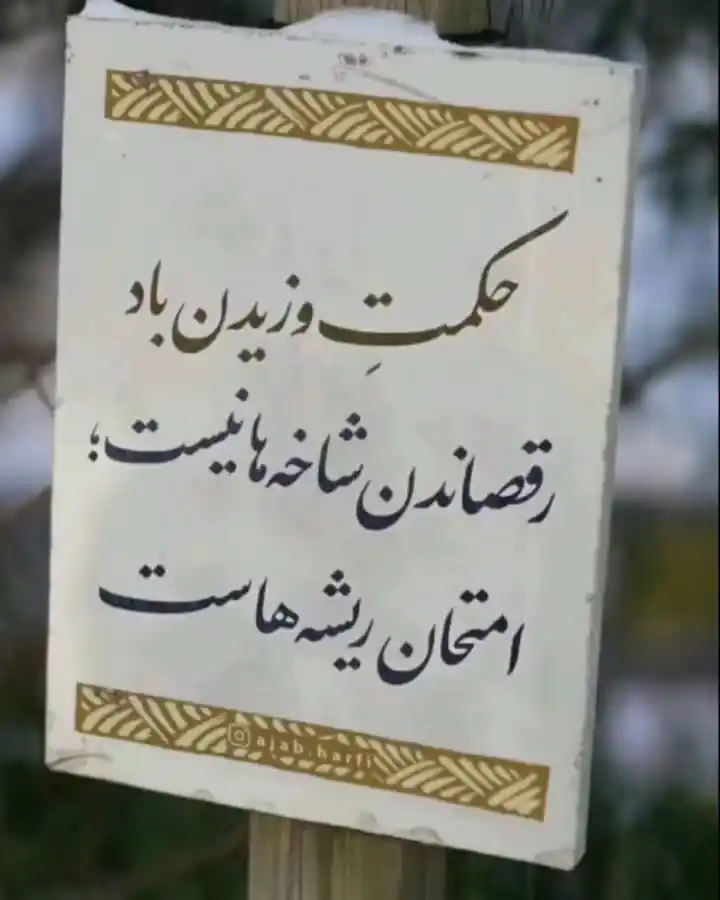 حکمتِ وزیدن باد
رقصاندن شاخه ها نیست؛
امتحان ریشه هاست
ajab.harfi